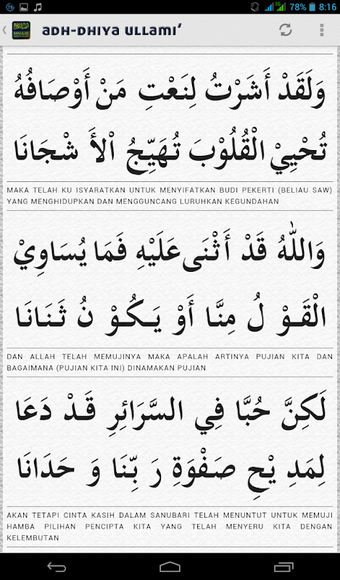 78% 8:16
ADH-DHIYA ULLAMI'
وَلَقَدْ أَشَرْتُ لِنَعْتِ مَنْ أَوْصَافُهُ
تُحْيِيْ الْقُلُوْبَ تُهَيِّجُ اْلأَ شْجَانَا
MAKA TELAH KU ISYARATKAN UNTUK MENYIFATKAN BUDI PEKERTI (BELIAU SAW)
YANG MENGHIDUPKAN DAN MENGGUNCANG LURUHKAN KEGUNDAHAN
وَاللهُ قَدْ أَثْنَى عَلَيْهِ فَمَا يُسَاوِيْ
الْقَوْ لُ مِنَّا أَوْ يَكُوْ نُ ثَنَانَا
DAN ALLAH TELAH MEMUJINYA MAKA APALAH ARTINYA PUJIAN KITA DAN
BAGAIMANA (PUJIAN KITA INI) DINAMAKAN PUJIAN
لَكِنَّ حُبًّا فِي السَّرَائِرِ قَدْ دَعَا
لِمَدِ يْحِ صَفْوَةِ رَ بِّنَا وَ حَدَانَا
AKAN TETAPI CINTA KASIH DALAM SANUBARI TELAH MENUNTUT UNTUK MEMUJI
HAMBA PILIHAN PENCIPTA KITA YANG TELAH MENYERU KITA DENGAN
KELEMBUTAN